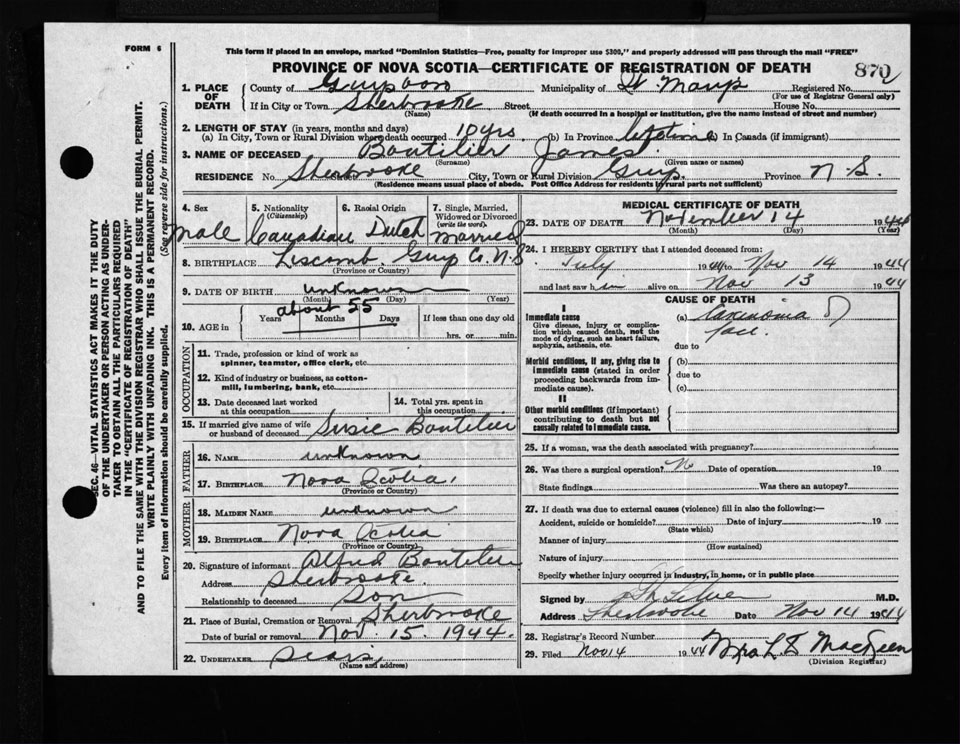 FORM 6
This form if placed in an envelope, marked "Dominion Statistics—Free, penalty for improper use $300," and properly addressed will pass through the mail "FREE"
PROVINCE OF NOVA SCOTIA—CERTIFICATE OF REGISTRATION OF DEATH
870
1. PLACE OF DEATH County of Guysboro Municipality of St. Marys Registered No.
(For use of Registrar General only)
If in City or Town Sherbrooke Street House No.
(Name) (If death occurred in a hospital or institution, give the name instead of street and number)
2. LENGTH OF STAY (in years, months and days)
(a) In City, Town or Rural Division where death occurred 10 yrs (b) In Province lifetime (c) In Canada (if immigrant)
3. NAME OF DECEASED Boutilier James
(Surname) (Given name or names)
RESIDENCE No. Sherbrooke Street City, Town or Rural Division Guys Province N.S.
(Residence means usual place of abode. Post Office Address for residents in rural parts not sufficient)
4. Sex Male
5. Nationality (Citizenship) Canadian
6. Racial Origin Dutch
7. Single, Married, Widowed or Divorced (write the word) Married
8. BIRTHPLACE Liscomb Guys Co. N.S
(Province or Country)
9. DATE OF BIRTH unknown
(Month) (Day) (Year)
10. AGE in Years Months Days about 55
If less than one day old
hrs. or min.
OCCUPATION
11. Trade, profession or kind of work as spinner, teamster, office clerk, etc.
12. Kind of industry or business, as cotton-mill, lumbering, bank, etc.
13. Date deceased last worked at this occupation
14. Total yrs. spent in this occupation
15. If married give name of wife or husband of deceased Susie Boutilier
FATHER
16. NAME unknown
17. BIRTHPLACE Nova Scotia
(Province or Country)
MOTHER
18. MAIDEN NAME unknown
19. BIRTHPLACE Nova Scotia
(Province or Country)
20. Signature of informant Alfred Boutilier
Address Sherbrooke
Relationship to deceased Son
21. Place of Burial, Cremation or Removal Sherbrooke
Date of burial or removal Nov. 15. 1944.
22. UNDERTAKER Sears
(Name and address)
MEDICAL CERTIFICATE OF DEATH
23. DATE OF DEATH November 14 1944
(Month) (Day) (Year)
24. I HEREBY CERTIFY that I attended deceased from
July 1944 to Nov 14 1944
and last saw him alive on Nov 13 1944
CAUSE OF DEATH
I
Immediate cause
Give disease, injury or complication which caused death, not the mode of dying, such as heart failure, asphyxia, asthenia, etc.
(a) Carcinoma of
face
due to
Morbid conditions, if any, giving rise to immediate cause (stated in order proceeding backwards from immediate cause).
(b)
due to
(c)
II
Other morbid conditions (if important) contributing to death but not causally related to immediate cause.
25. If a woman, was the death associated with pregnancy?
26. Was there a surgical operation? No Date of operation 19
State findings Was there an autopsy?
27. If death was due to external causes (violence) fill in also the following:—
Accident, suicide or homicide? Date of injury 19
(State which)
Manner of injury
(How sustained)
Nature of injury
Specify whether injury occurred in industry, in home, or in public place
Signed by M.D.
Address Sherbrooke Date Nov 14 1944
28. Registrar's Record Number
29. Filed Nov 14 1944 Mrs L E MacKeen
(Division Registrar)
SEC. 46—VITAL STATISTICS ACT MAKES IT THE DUTY
OF THE UNDERTAKER OR PERSON ACTING AS UNDER-
TAKER TO OBTAIN ALL THE PARTICULARS REQUIRED
IN THE "CERTIFICATE OF REGISTRATION OF DEATH"
AND TO FILE THE SAME WITH THE DIVISION REGISTRAR WHO SHALL ISSUE THE BURIAL PERMIT.
WRITE PLAINLY WITH UNFADING INK. THIS IS A PERMANENT RECORD.
Every item of information should be carefully supplied. (See reverse side for instructions.)